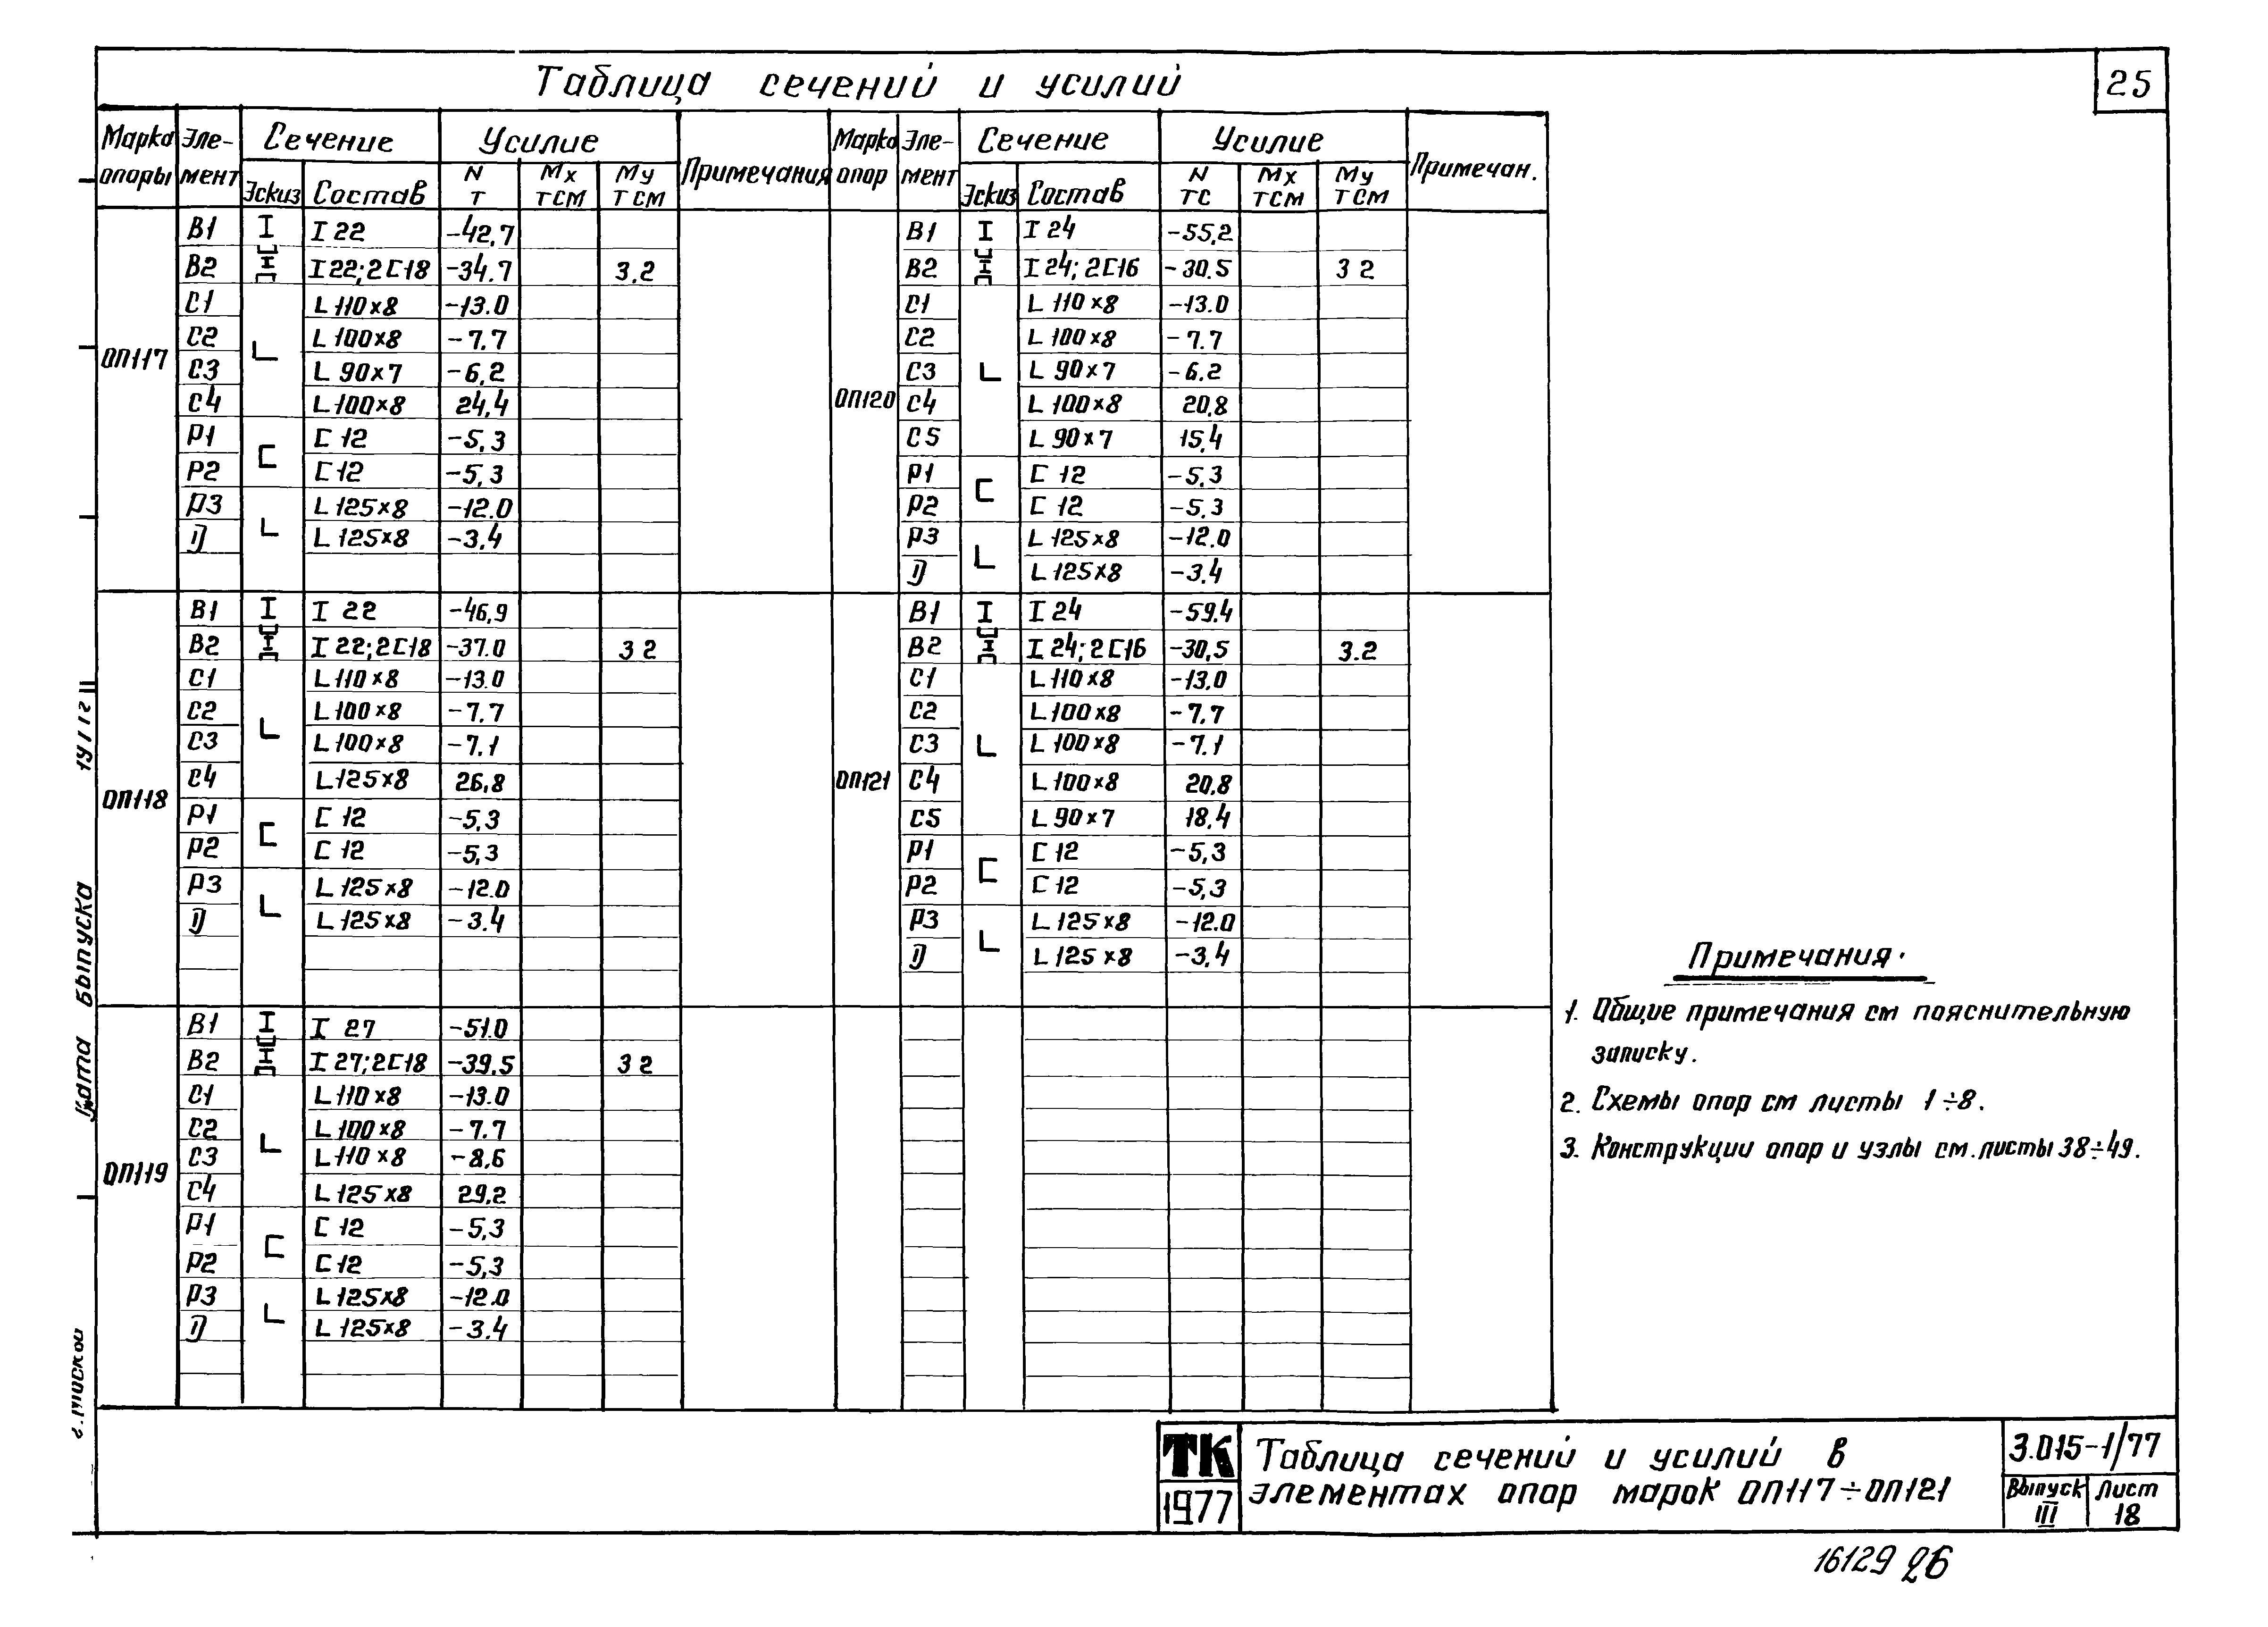 25
Таблица сечений и усилий
Марка опоры Эле-мент Сечение Усилие Примечания Марка опор Эле-мент Сечение Усилие Примечан.
Эскиз Состав N Т Мх ТСМ Му ТСМ Эскиз Состав N ТС Мх ТСМ Му ТСМ
ОП117
В1 I I 22 -42,7
В2 I 22; 2[18 -34.7 3.2
С1 L 110×8 -13.0
С2 L 100×8 -7.7
С3 L 90×7 -6,2
С4 L 100×8 24,4
Р1 [ 12 -5,3
Р2 [ 12 -5,3
Р3 L 125×8 -12.0
Д L 125×8 -3,4
ОП118
В1 I I 22 -46,9
В2 I 22; 2[18 -37.0 3 2
С1 L 110×8 -13.0
С2 L 100×8 -7.7
С3 L 100×8 -7.1
С4 L 125×8 26,8
Р1 [ 12 -5,3
Р2 [ 12 -5,3
Р3 L 125×8 -12.0
Д L 125×8 -3.4
ОП119
В1 I I 27 -51.0
В2 I 27; 2[18 -39.5 3 2
С1 L 110×8 -13.0
С2 L 100×8 -7.7
С3 L 110×8 -8,6
С4 L 125×8 29,2
Р1 [ 12 -5,3
Р2 [ 12 -5,3
Р3 L 125×8 -12.0
Д L 125×8 -3.4
ОП120
В1 I I 24 -55,2
В2 I 24; 2[16 -30.5 3 2
С1 L 110×8 -13.0
С2 L 100×8 -7.7
С3 L 90×7 -6.2
С4 L 100×8 20,8
С5 L 90×7 15,4
Р1 [ 12 -5.3
Р2 [ 12 -5.3
Р3 L 125×8 -12.0
Д L 125×8 -3.4
ОП121
В1 I I 24 -59.4
В2 I 24; 2[16 -30,5 3.2
С1 L 110×8 -13,0
С2 L 100×8 -7.7
С3 L 100×8 -7.1
С4 L 100×8 20,8
С5 L 90×7 18,4
Р1 [ 12 -5,3
Р2 [ 12 -5,3
Р3 L 125×8 -12.0
Д L 125×8 -3,4
Примечания.
1. Общие примечания см пояснительную
записку.
2. Схемы опор см листы 1÷8.
3. Конструкции опор и узлы см. листы 38÷49.
ТК
1977
Таблица сечений и усилий в
элементах опор марок ОП117÷ОП121
3.015-1/77
Выпуск III
Лист 18
16129 26
г. Москва
Дата выпуска